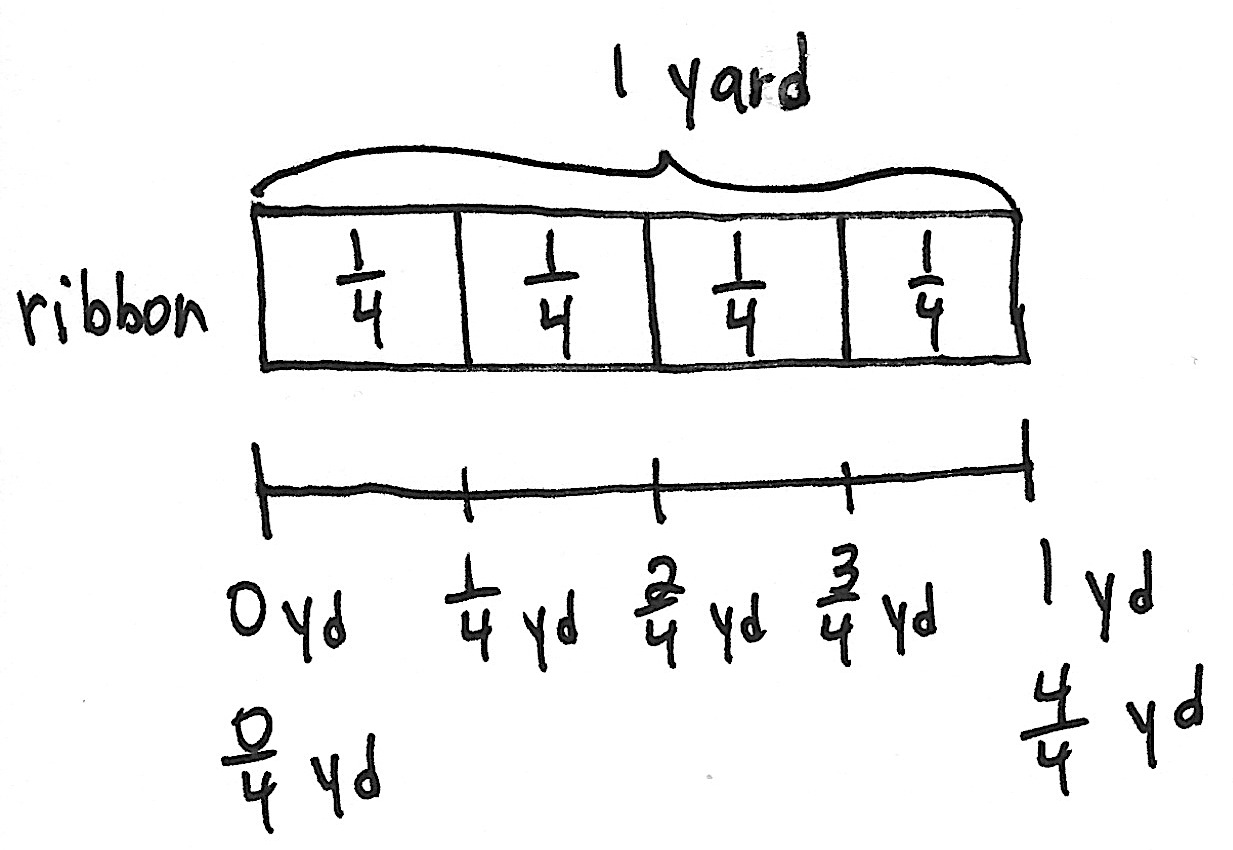 1 yard
ribbon 1/4 1/4 1/4 1/4
0 yd 1/4 yd 2/4 yd 3/4 yd 1 yd
0/4 yd 4/4 yd